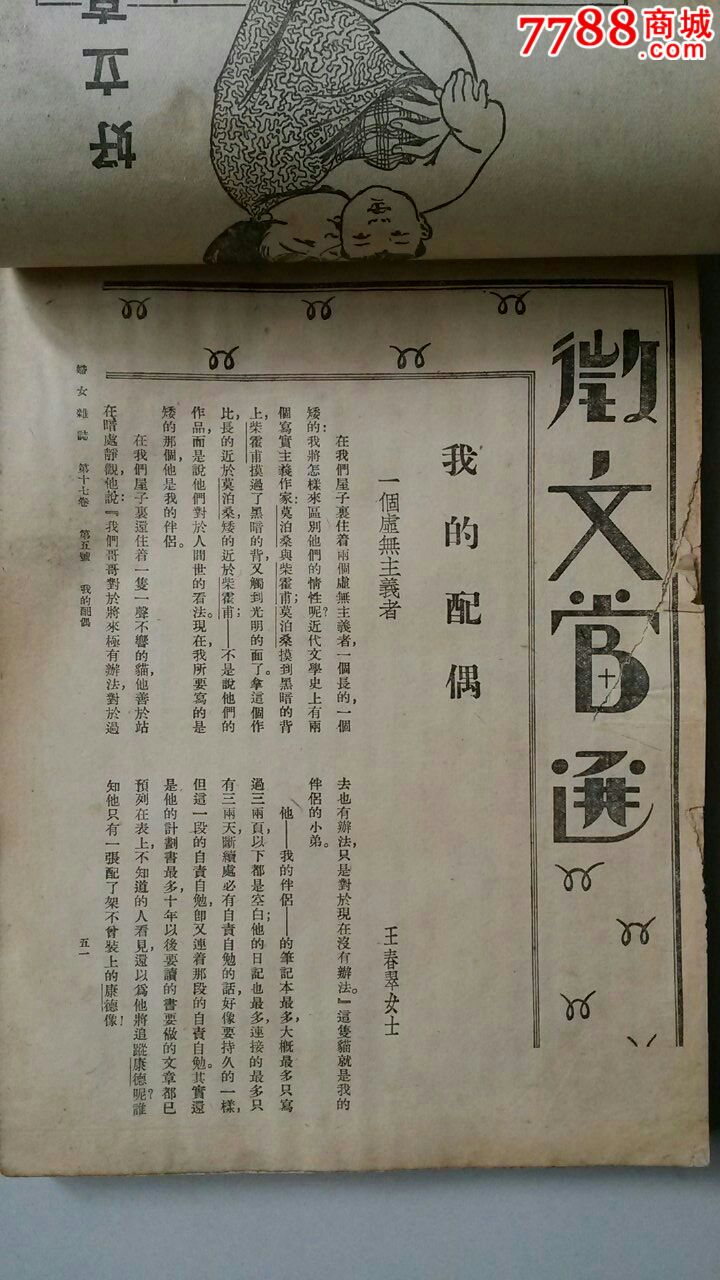 7788商城
.com
好立真
徵文當選
我的配偶
一個虛無主義者
王春翠女士
在我們屋子裏住着兩個虛無主義者，一個長的，一個
矮的：我將怎樣來區別他們的情性呢？近代文學史上有兩
個寫實主義作家：莫泊桑與柴霍甫；莫泊桑摸到黑暗的背
上，柴霍甫摸過了黑暗的背，又觸到光明的面了。拿這個作
比，長的近於莫泊桑，矮的近於柴霍甫；——不是說他們的
作品，而是說他們對於人間世的看法。現在我所要寫的是
矮的那個，他是我的伴侶。
在我們屋子裏還住着一隻一聲不響的貓，他善於站
在暗處靜觀，他說：『我們哥哥對於將來極有辦法，對於過
去也有辦法，只是對於現在沒有辦法。』這隻貓就是我的
伴侶的小弟。
他——我的伴侶——的筆記本最多，大概最多只寫
過三兩頁，以下都是空白；他的日記也最多，連接的最多只
有三兩天，斷續處必有自責自勉的話，好像要持久的一樣，
但這一段的自責自勉，卽又連着那段的自責自勉。其實還
是他的計劃書最多，十年以後要讀的書要做的文章都已
預列在表上，不知道的人看見，還以爲他將追蹤康德呢？誰
知他只有一張配了架不曾裝上的康德像！
婦女雜誌 第十七卷 第五號 我的配偶
五一